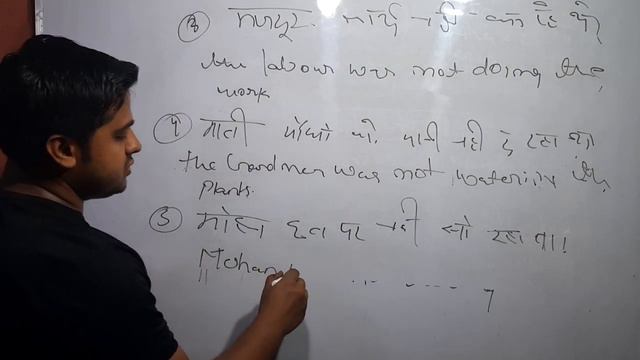 ③ मजदूर कार्य नही कर रहे थे
the labour was not doing the
work
④ माली पौधो को पानी नही दे रहा था
the Gardner was not watering the
plants.
⑤ मोहन छत पर नही सो रहा था!
Mohan